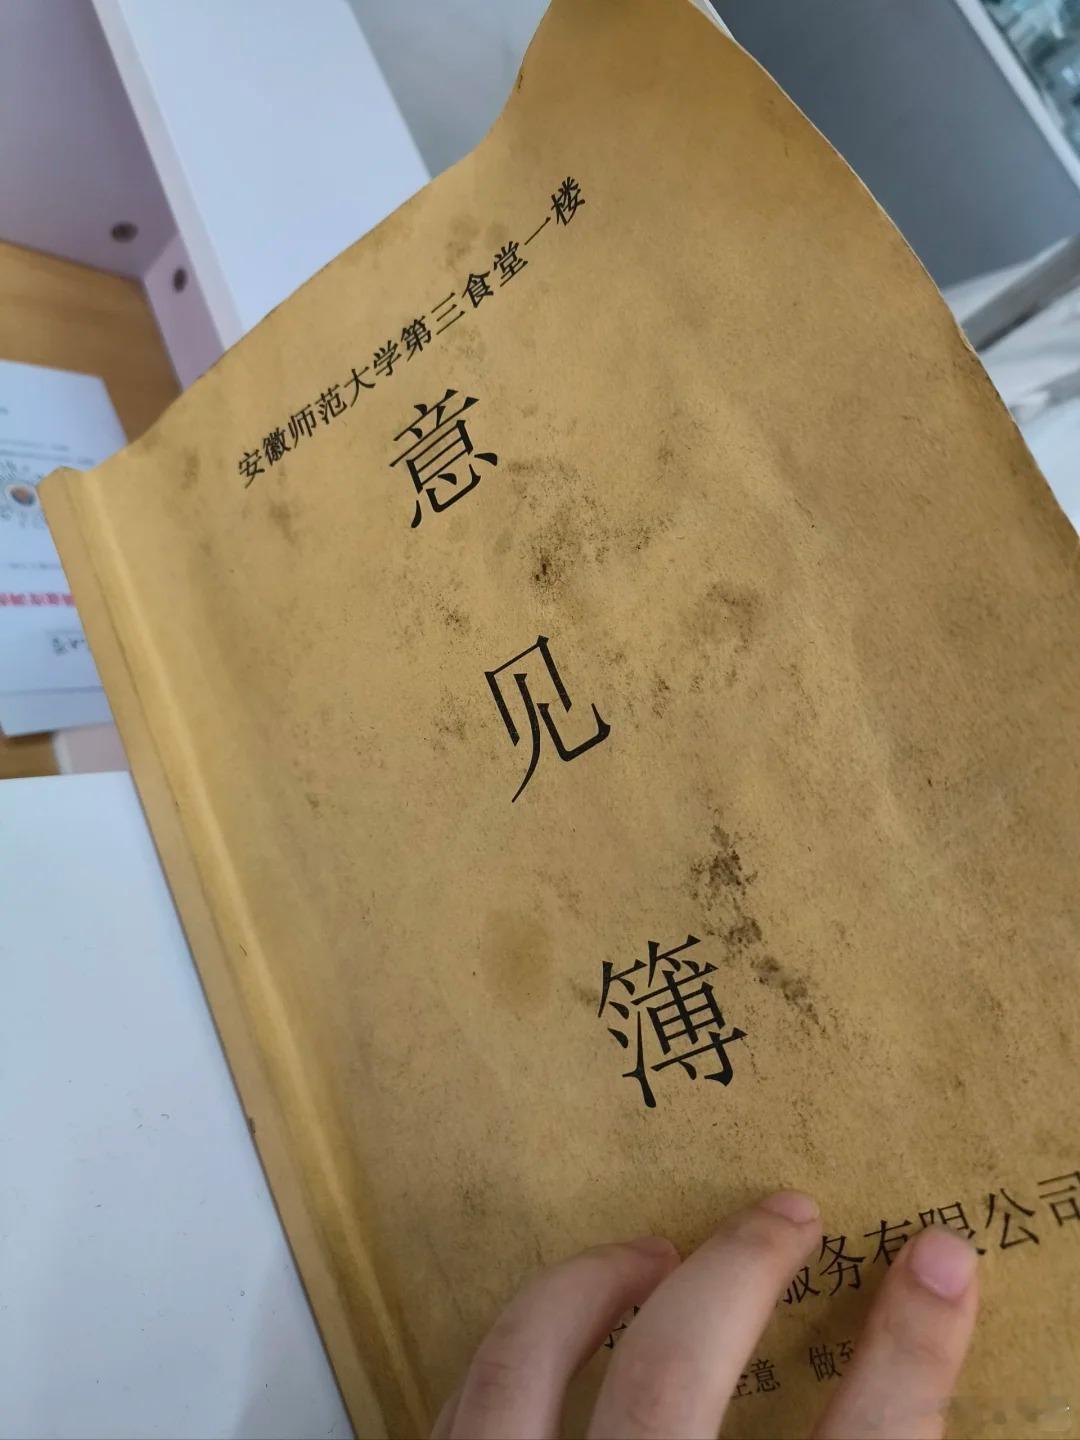 安徽师范大学第三食堂一楼
意
见
簿
服务有限公司
全意 做至